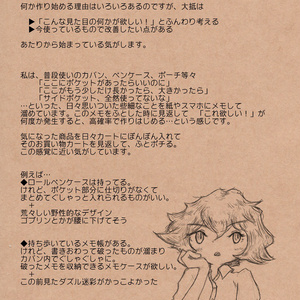 何か作り始める理由はいろいろあるのですが、大抵は
▶「こんな見た目の何かが欲しい！」とふんわり考える
▶今使っているもので改善したい点がある
あたりから始まっている気がします。
私は、普段使いのカバン、ペンケース、ポーチ等々
「ここにポケットがあったらいいのに」
「ここがもう少しだけ長かったら、大きかったら」
「サイドポケット、全然使ってないな」
…といった、日々思いついた些細なことを紙やスマホにメモして
溜めています。このメモをふとした時に見返して 「これ欲しい！」が
何度か発生すると、高確率で作りはじめる…という感じです。
気になった商品を日々カートにぽんぽん入れて
そのお買い物カートを見返して、ふとポチる。
この感覚に近い気がしています。
例えば…
◆ロールペンケースは持ってる。
けれど、ポケット部分に仕切りがなくて
まとめてぐしゃっと入れられるのが欲しい。
+
荒々しい野性的なデザイン
ゴブリンとかが腰に下げてそう
◆持ち歩いているメモ帳がある。
けれど、書きおわって破ったものが溜まり
カバン内でぐしゃぐしゃに。
破ったメモを収納できるメモケースが欲しい。
+
この前見たダズル迷彩がかっこよかった